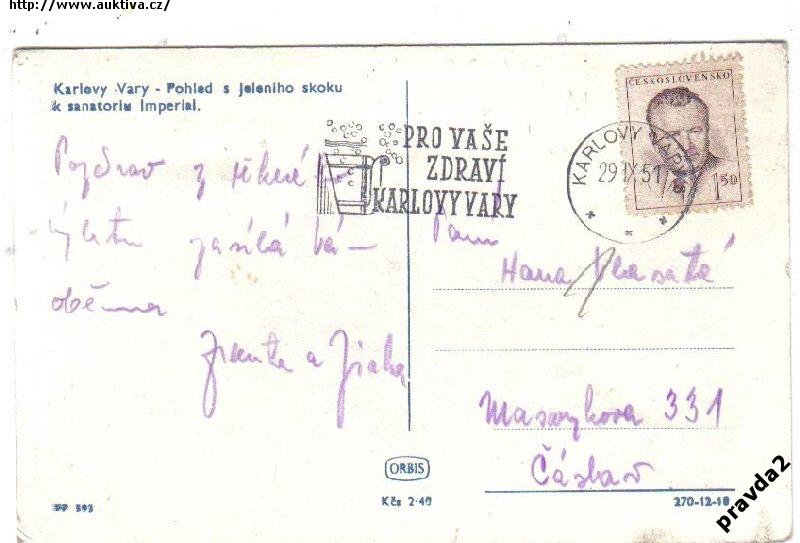 http://www.auktiva.cz/
Karlovy Vary - Pohled s Jeleního skoku
k sanatoriu Imperial.
PRO VAŠE
ZDRAVÍ
KARLOVY VARY
KARLOVY VARY
29 IX 51
ČESKOSLOVENSKO
1 50
Pozdrav z
výletu zasílá Vá-
oběma
Franta a
Paní
Hana Vlasatá
Masarykova 331
Čáslav
ORBIS
Kčs 2·40
593
270-12-18
pravda2